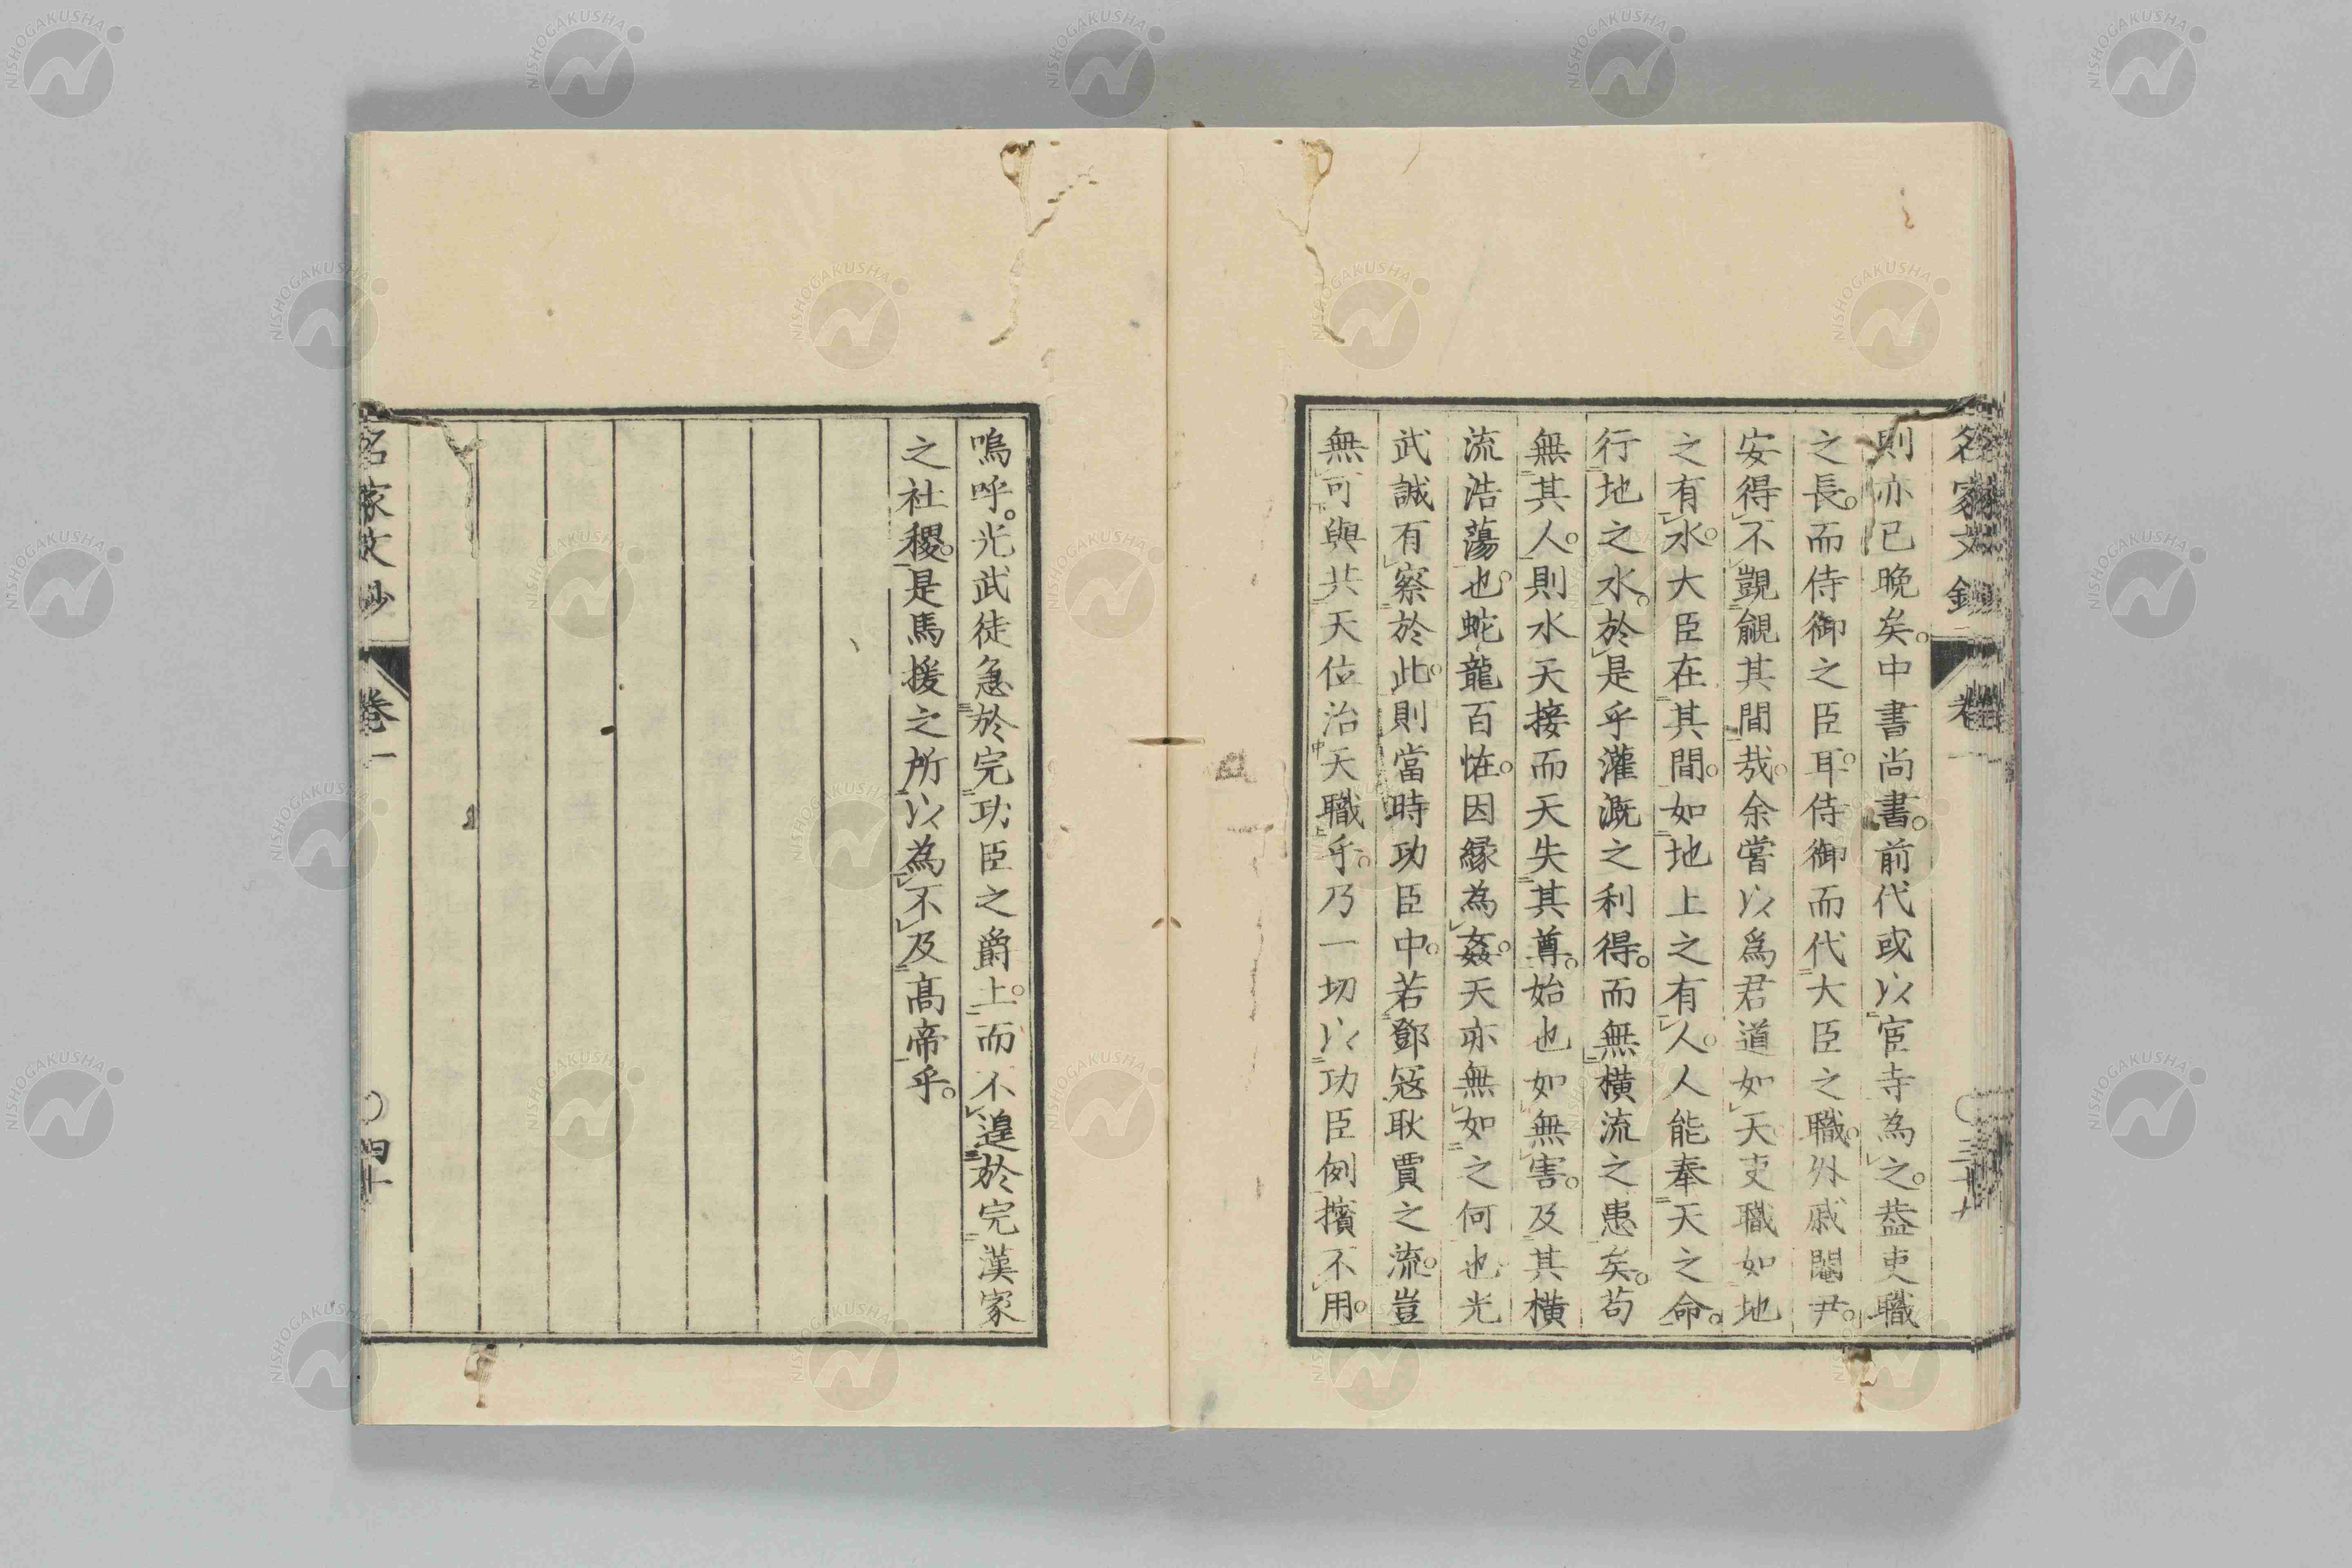 名家文鈔 卷一 ○三十九
則亦已晩矣。中書尚書。前代或以宦寺為之。葢吏職
之長。而侍御之臣耳。侍御而代大臣之職。外戚閹尹。
安得不覬覦其間哉。余嘗以爲君道如天。吏職如地
之有水。大臣在其間。如地上之有人。人能奉天之命。
行地之水。於是乎灌漑之利得。而無橫流之患矣。苟
無其人。則水天接而天失其尊。始也如無害。及其橫
流浩蕩也。蛇龍百恠。因緣為姦。天亦無如之何也。光
武誠有察於此。則當時功臣中。若鄧寇耿賈之流。豈
無可與共天位治天職乎。乃一切以功臣例擯不用。
嗚呼。光武徒急於完功臣之爵上。而不遑於完漢家
之社稷。是馬援之所以為不及高帝乎。
名家文鈔 卷一 ○四十
NISHOGAKUSHA